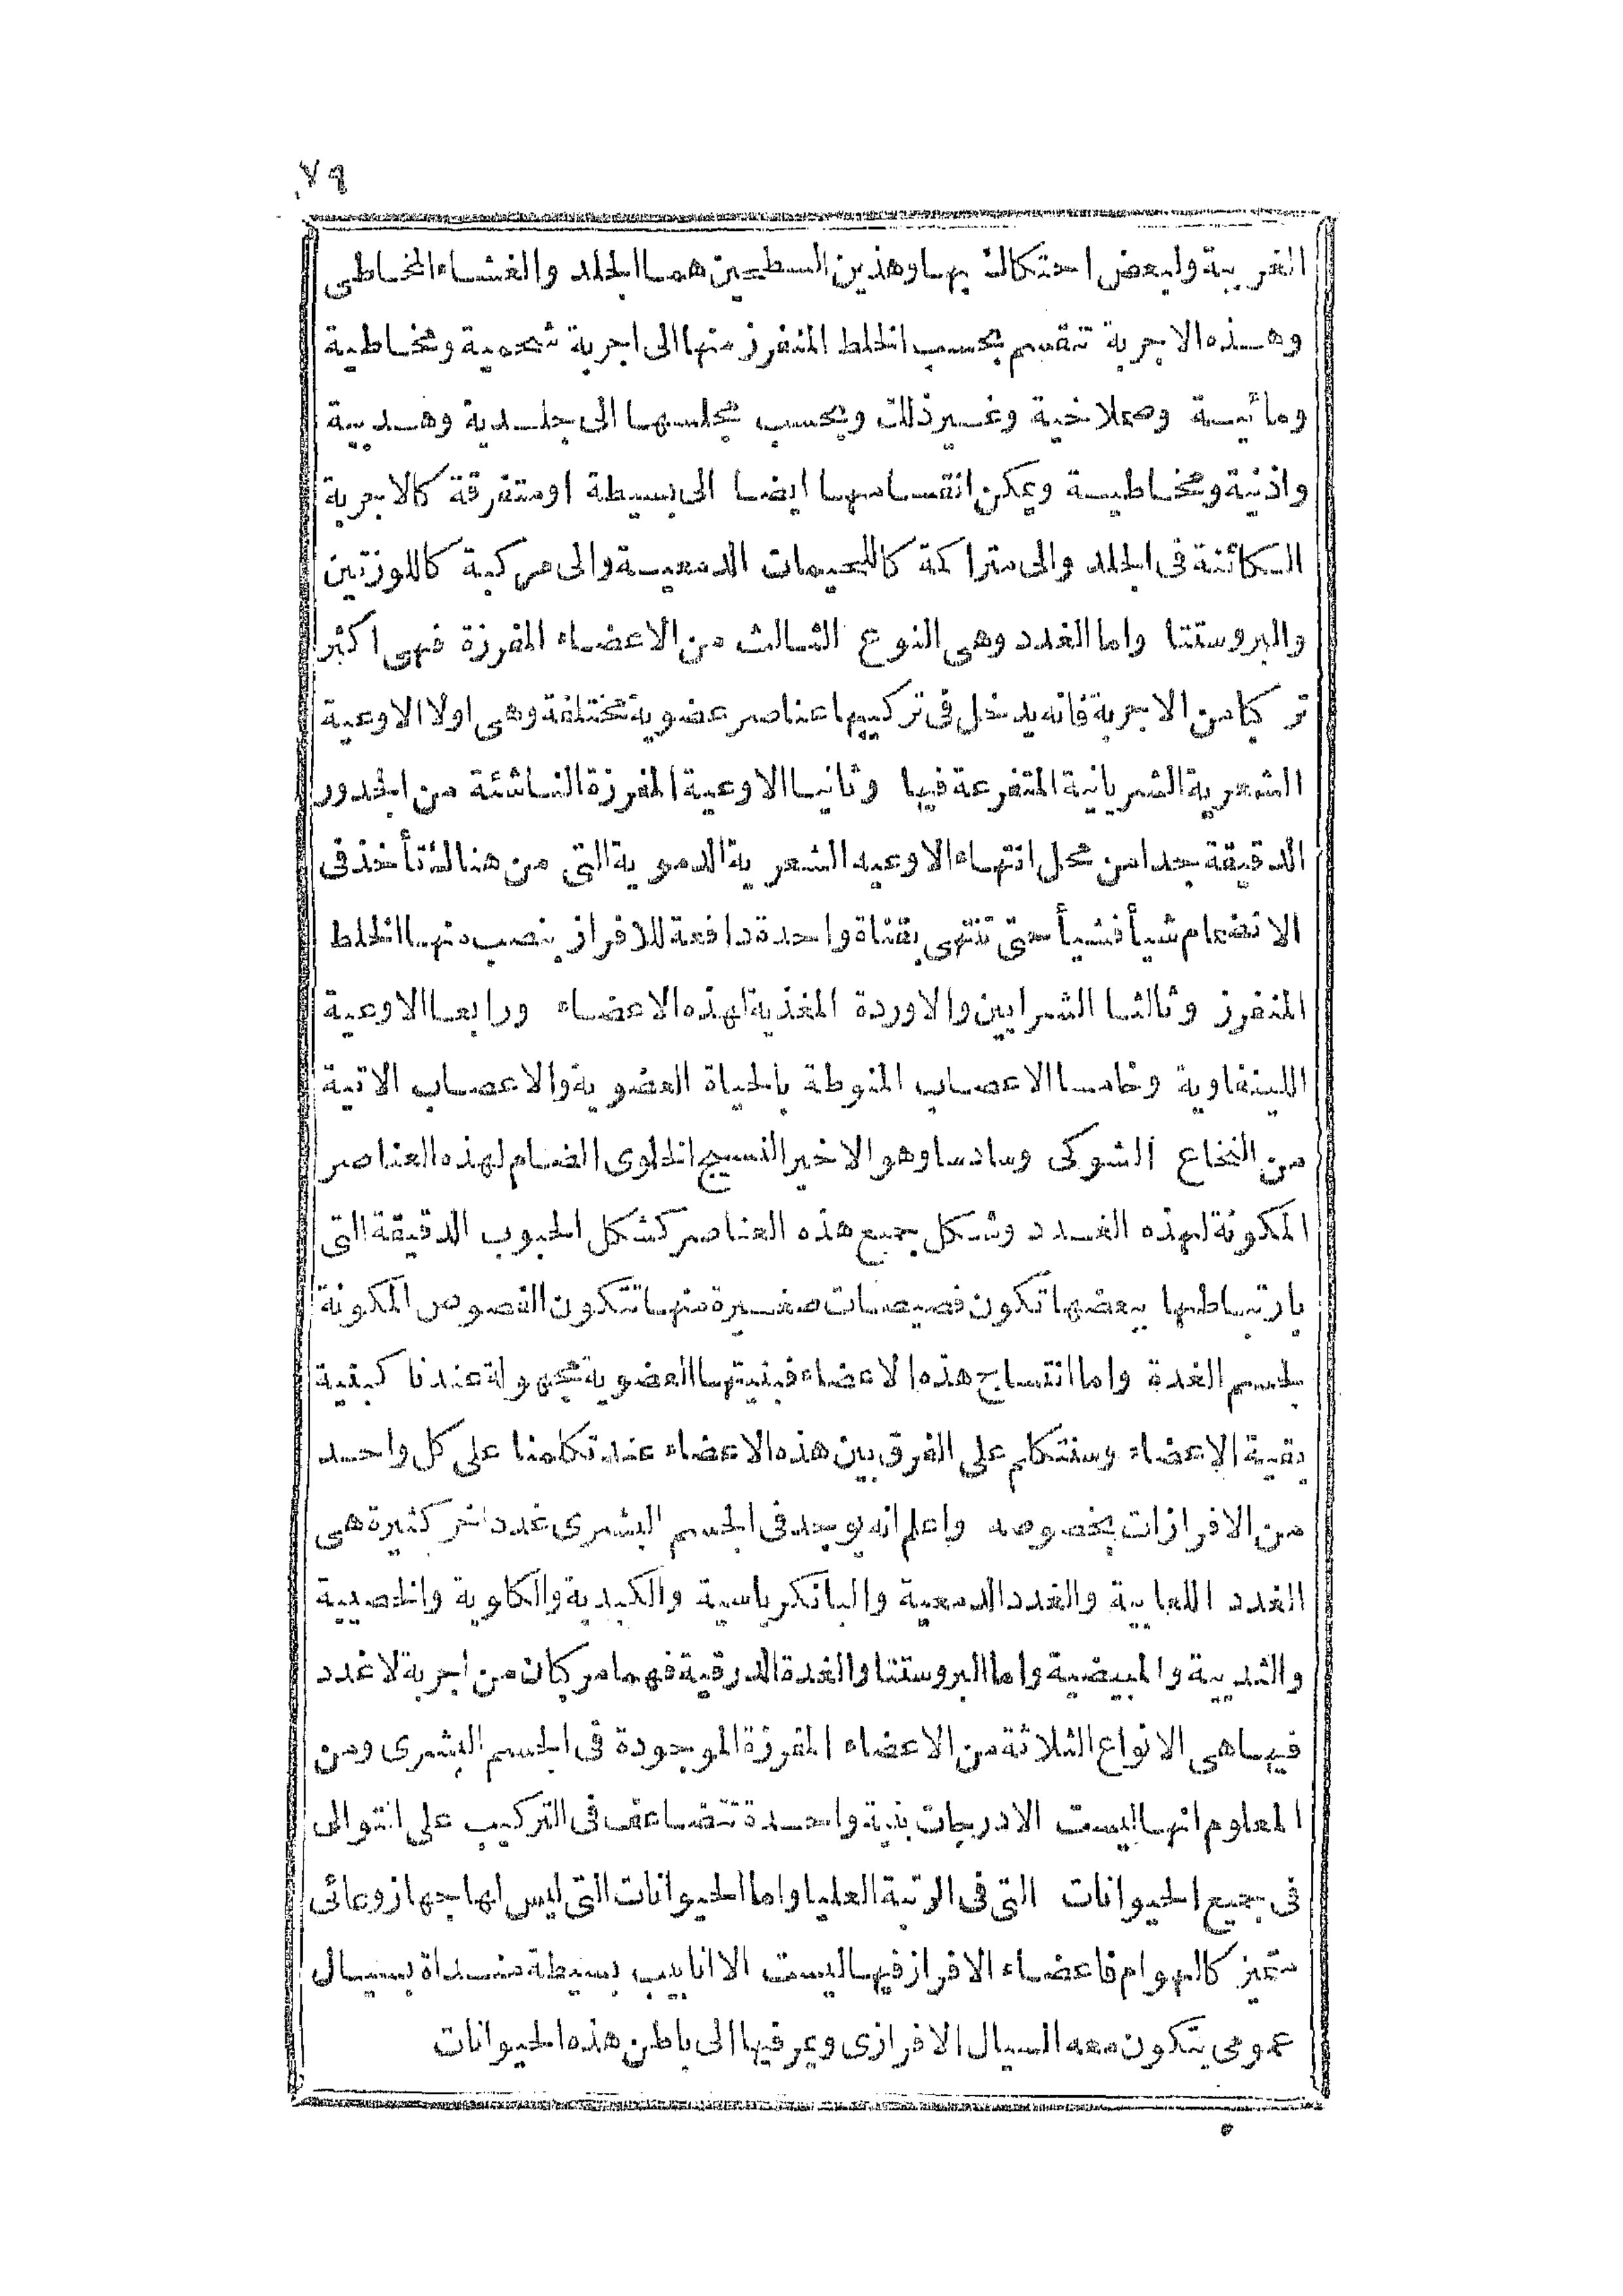 ٧٩
الغريبة ولبعض احتكاك بها وهذين السطحين هما الجلد والغشاء المخاطى
وهذه الاجربة تنقسم بحسب الخلط المنفرز منها الى اجربة شحمية ومخاطية
ومائية وصملاخية وغير ذلك وبحسب مجلسها الى جلدية وهدبية
واذنية ومخاطية ويمكن انقسامها ايضا الى بسيطة او متفرقة كالاجربة
الكائنة فى الجلد والى متراكمة كاللحيمات الدمعية والى مركبة كاللوزتين
والبروستتا واما الغدد وهى النوع الثالث من الاعضاء المفرزة فهى اكثر
تركبا من الاجربة فانه يدخل فى تركيبها عناصر عضوية مختلفة وهى اولا الاوعية
الشعرية الشريانية المتفرعة فيها وثانيا الاوعية المفرزة الناشئة من الجدور
الدقيقة جدا من محل انتهاء الاوعيه الشعرية الدموية التى من هناك تأخذ فى
الانضمام شيأ فشيأ حتى تنتهى بقناة واحدة دافعة للافراز ينصب منها الخلط
المنفرز وثالثا الشرايين والاوردة المغذية لهذه الاعضاء ورابعا الاوعية
اللينفاوية وخامسا الاعصاب المنوطة بالحياة العضوية والاعصاب الاتية
من النخاع الشوكى وسادسا وهو الاخير النسيج الخلوى الضام لهذه العناصر
المكونة لهذه الغدد وشكل جميع هذه العناصر كشكل الحبوب الدقيقة التى
بارتباطها ببعضها تكون فصيصات صغيرة منها تتكون الفصوص المكونة
لجسم الغدة واما انتساج هذه الاعضاء فبنيتها العضوية مجهولة عندنا كبقية
بقية الاعضاء وسنتكلم على الفرق بين هذه الاعضاء عند تكلمنا على كل واحد
من الافرازات بخصوصه واعلم انه يوجد فى الجسم البشرى غدد اخر كثيرة هى
الغدد اللعابية والغدد الدمعية والبانكرياسية والكبدية والكلوية والخصيية
والثديية والمبيضية واما البروستتا والغدة الدرقية فهما مركبان من اجربة لا غدد
فيها هى الانواع الثلاثة من الاعضاء المفرزة الموجودة فى الجسم البشرى ومن
المعلوم انها ليست الا درجات بنية واحدة تتضاعف فى التركيب على التوالى
فى جميع الحيوانات التى فى الرتبة العليا واما الحيوانات التى ليس لها جهاز وعائى
متميز كالهوام فاعضاء الافراز فيها ليست الا انابيب بسيطة منداة بسيال
عمومى يتكون معه السيال الافرازى ويمر فيها الى باطن هذه الحيوانات